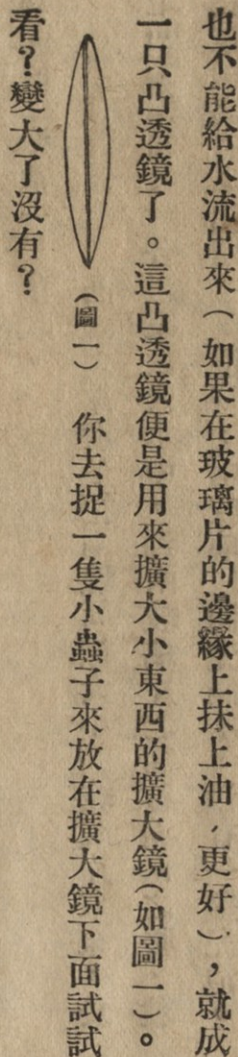 也不能給水流出來（如果在玻璃片的邊緣上抹上油，更好），就成
一只凸透鏡了。這凸透鏡便是用來擴大小東西的擴大鏡（如圖一）。
（圖一）　你去捉一隻小蟲子來放在擴大鏡下面試試
看？變大了沒有？